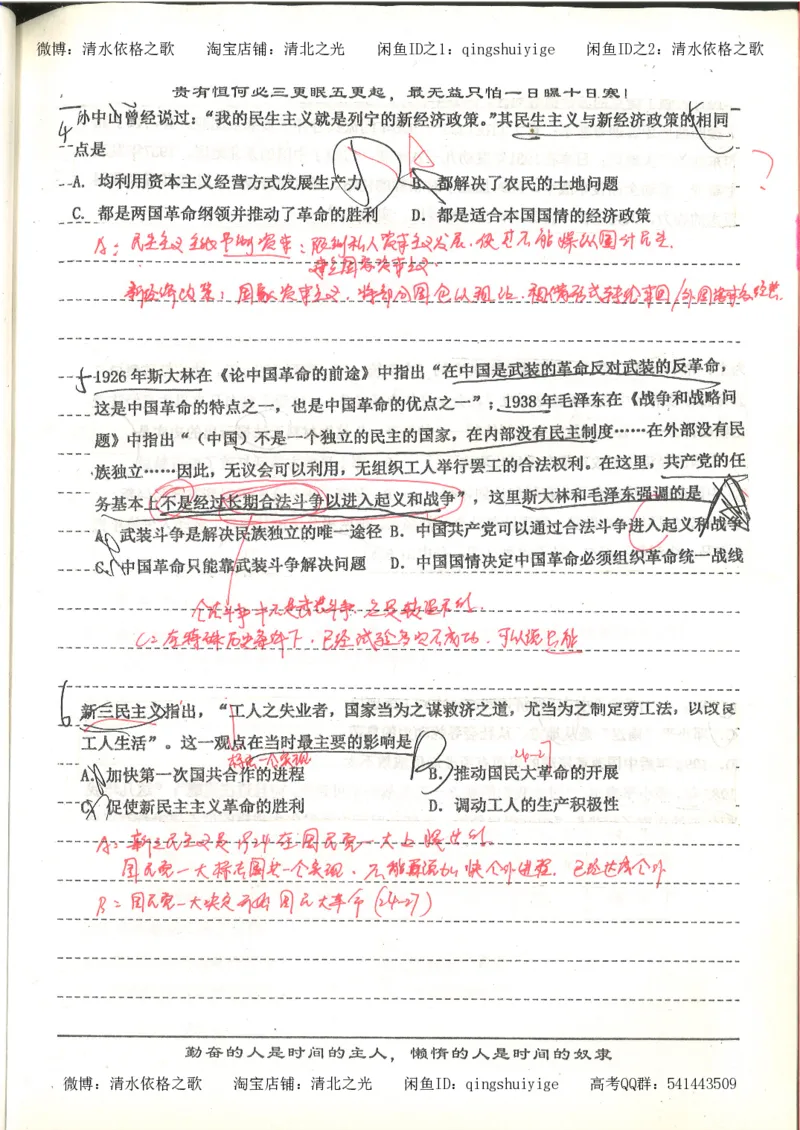 微博：清水依格之歌 淘宝店铺：清北之光 闲鱼ID之1：qingshuiyige 闲鱼ID之2：清水依格之歌
贵有恒何必三更眠五更起，最无益只怕一日曝十日寒！
4 孙中山曾经说过：“我的民生主义就是列宁的新经济政策。”其民生主义与新经济政策的相同
点是
A. 均利用资本主义经营方式发展生产力 B. 都解决了农民的土地问题
C. 都是两国革命纲领并推动了革命的胜利 D. 都是适合本国国情的经济政策
A：民生主义 节制资本：限制私人资本主义发展，使其不能操纵国计民生
建立国家资本主义
新经济政策：国家资本主义，将部分国企以租让、租借形式 本国/外国资本家经营.
5 1926年斯大林在《论中国革命的前途》中指出“在中国是武装的革命反对武装的反革命，
这是中国革命的特点之一，也是中国革命的优点之一”；1938年毛泽东在《战争和战略问
题》中指出“（中国）不是一个独立的民主的国家，在内部没有民主制度……在外部没有民
族独立……因此，无议会可以利用，无组织工人举行罢工的合法权利。在这里，共产党的任
务基本上不是经过长期合法斗争以进入起义和战争”，这里斯大林和毛泽东强调的是
A. 武装斗争是解决民族独立的唯一途径 B. 中国共产党可以通过合法斗争进入起义和战争
C. 中国革命只能靠武装斗争解决问题 D. 中国国情决定中国革命必须组织革命统一战线
合法斗争
C：在特殊历史条件下，已经试验多次不成功，可以说只能
6 新三民主义指出，“工人之失业者，国家当为之谋救济之道，尤当为之制定劳工法，以改良
工人生活”。这一观点在当时最主要的影响是
标志一个实现 24-27
A. 加快第一次国共合作的进程 B. 推动国民大革命的开展
C. 促使新民主主义革命的胜利 D. 调动工人的生产积极性
A：新三民主义是1924在国民党一大上提出的.
国民党一大标志国共一合实现，不能再说加快合作进程，已经达成合作
B：国民党一大决定开始国民大革命（24-27）
勤奋的人是时间的主人，懒惰的人是时间的奴隶
微博：清水依格之歌 淘宝店铺：清北之光 闲鱼ID：qingshuiyige 高考QQ群：541443509